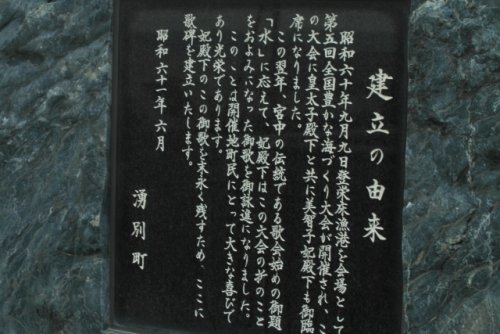 建立の由来
昭和六十年九月九日登栄床漁港を会場とし
第五回全国豊かな海づくり大会が開催され、こ
の大会に皇太子殿下と共に美智子妃殿下も御臨
席になりました。
この翌年、宮中の伝統である歌会始めの御題
「水」に応えて、妃殿下はこの大会の折のこと
をおよみになった御歌を御詠進になりました。
このことは開催地町民にとって大きな喜びで
あり光栄であります。
妃殿下のこの御歌を末永く残すため、ここに
歌碑を建立いたします。
昭和六十一年六月
湧別町